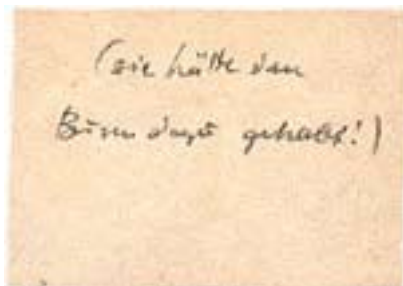 (sie hätte den
Busen dazu gehabt!)